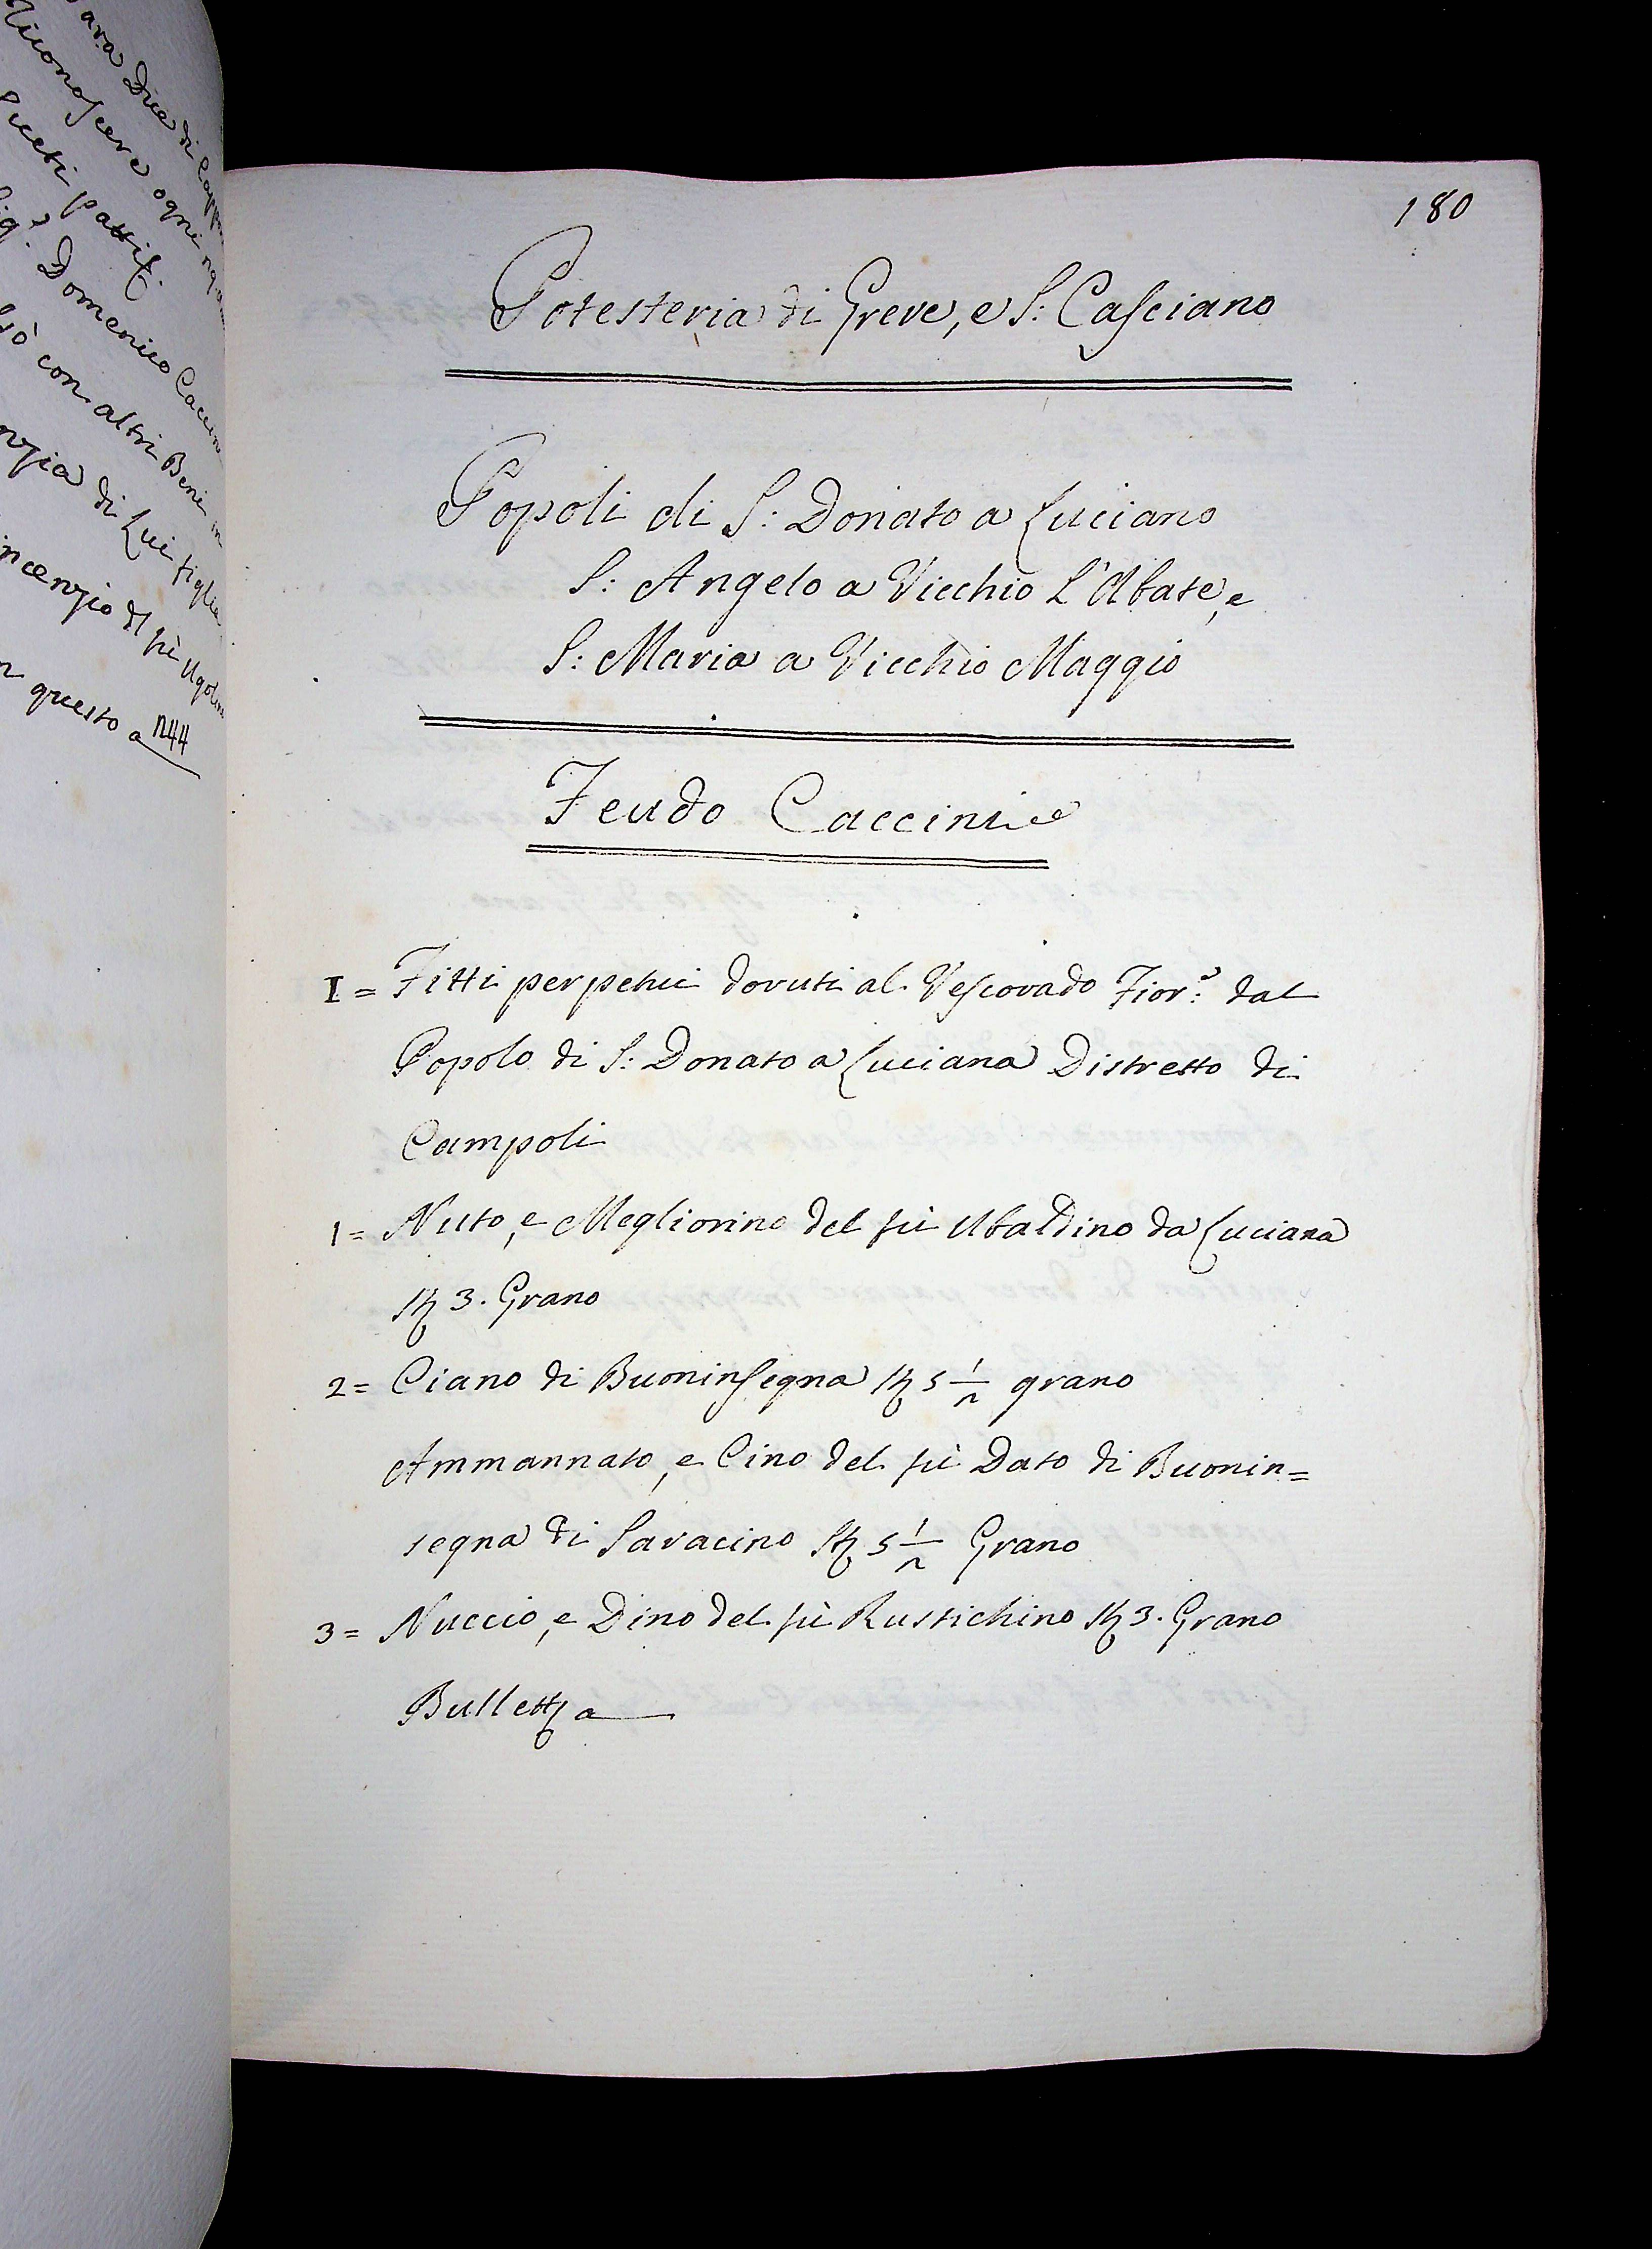 ara Due di Capp
riconoscere ogni
sueti patti &c.
Sig.e Domenico Caccin
sò con altri Beni in
di Lui figlia
incenzio del fù Ugolin
questo a n44
180
Potesteria di Greve, e S: Casciano
Popoli di S: Donato a Luciano
S: Angelo a Vicchio L'Abate, e
S: Maria a Vicchio Maggio
Feudo Caccini
I = Fitti perpetui dovuti al Vescovado Fior:o dal
Popolo di S: Donato a Luciana Distretto di
Campoli
1 = Nuto, e Megliorino del fù Ubaldino da Luciana
Stª 3. Grano
2 = Ciano di Buoninsegna Stª 5 1/2 grano
Ammannato, e Cino del fù Dato di Buonin=
segna di Saracino Stª 5 1/2 Grano
3 = Nuccio, e Dino del fù Rustichino Stª 3. Grano
Bulletta